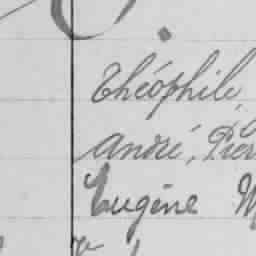 Théophile,
André, Pier
Eugène M